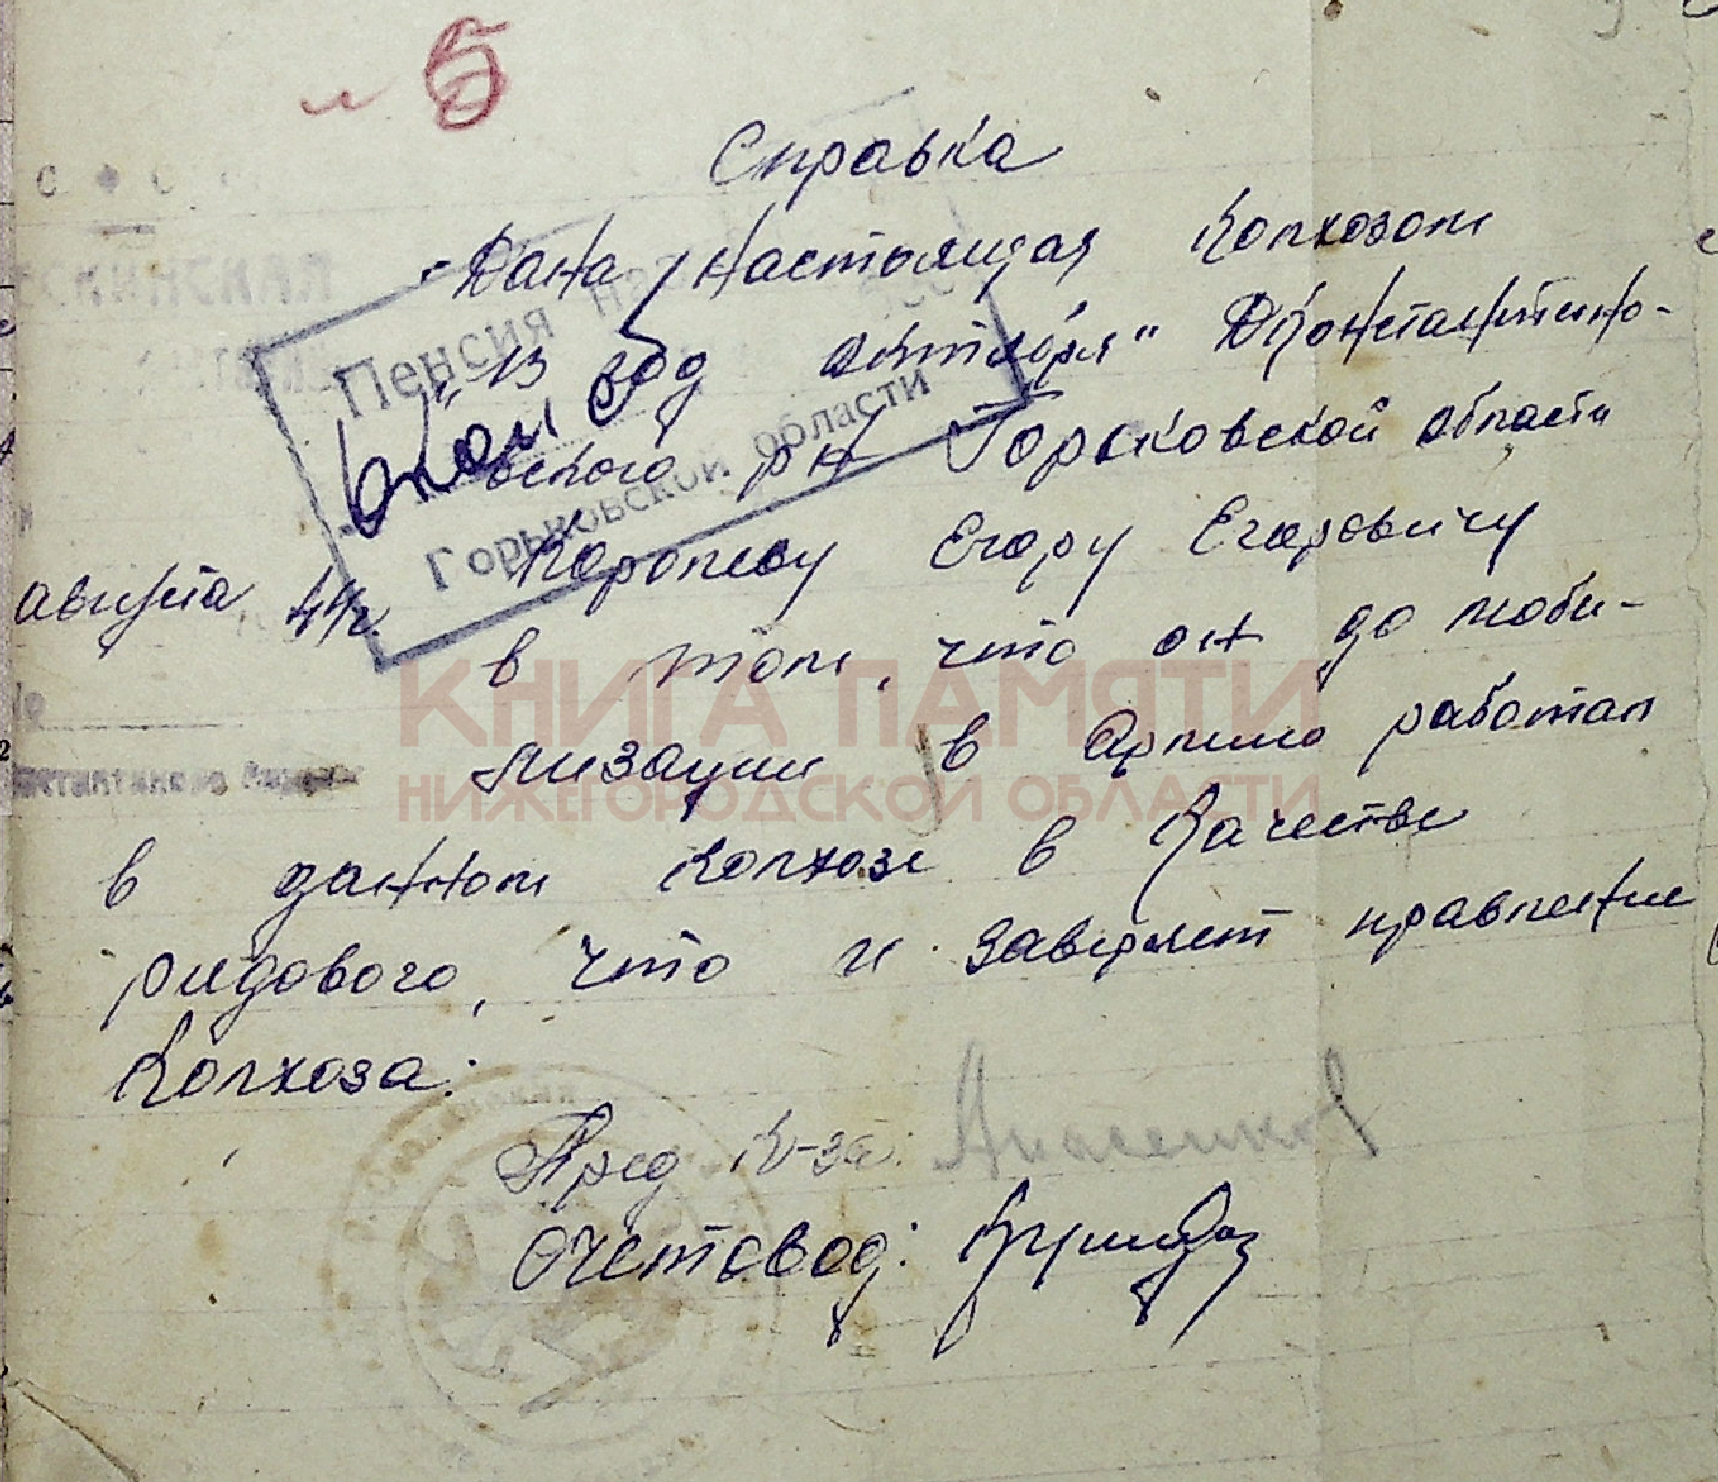 5
Справка
Дана настоящая колхозом
"13 год октября" Дконстантино-
вского рн Горьковской области
Королеву Егору Егоровичу
августа 44г.
в том, что он до моби-
лизации в Армию работал
в данном колхозе в качестве
ридового, что и заверяет правление
колхоза:
Пред к-за:
Счетовод:
Пенсия
Горьковской области
КНИГА ПАМЯТИ
НИЖЕГОРОДСКОЙ ОБЛАСТИ